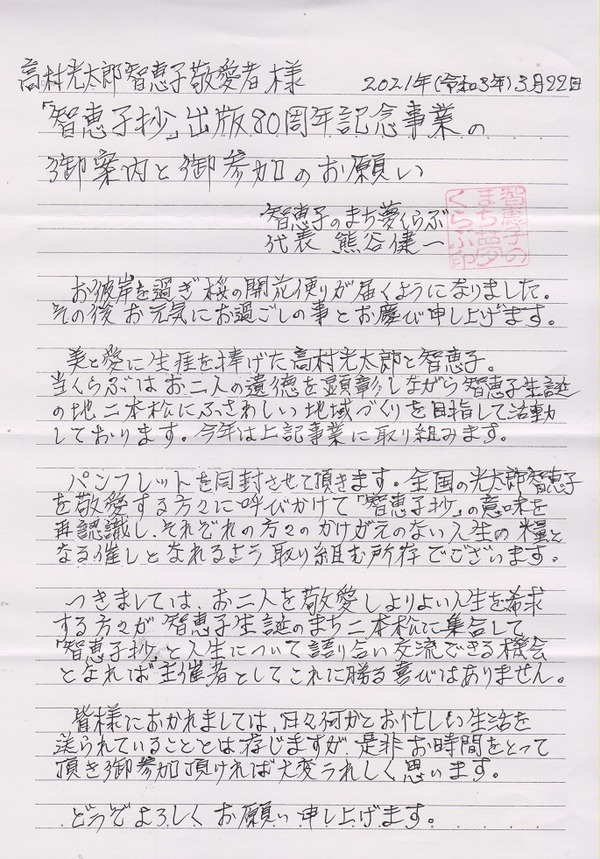 高村光太郎智恵子敬愛者様
2021年(令和3年)3月22日
「智恵子抄」出版80周年記念事業の
御案内と御参加のお願い
智恵子のまち夢くらぶ
代表 熊谷健一
智恵子の
まち夢
くらぶ印
お彼岸を過ぎ桜の開花便りが届くようになりました。
その後お元気にお過ごしの事とお慶び申し上げます。
美と愛に生涯を捧げた高村光太郎と智恵子。
当くらぶはお二人の遺徳を顕彰しながら智恵子生誕
の地二本松にふさわしい地域づくりを目指して活動
しております。今年は上記事業に取り組みます。
パンフレットを同封させて頂きます。全国の光太郎智恵子
を敬愛する方々に呼びかけて「智恵子抄」の意味を
再認識し、それぞれの方々のかけがえのない人生の糧と
なる催しとなれるよう取り組む所存でございます。
つきましては、お二人を敬愛しよりよい人生を希求
する方々が智恵子生誕のまち二本松に集合して
「智恵子抄」と人生について語り合い交流できる機会
となれば主催者としてこれに勝る喜びはありません。
皆様におかれましては、日々何かとお忙しい生活を
送られていることとは存じますが、是非お時間をとって
頂き御参加頂ければ大変うれしく思います。
どうぞよろしくお願い申し上げます。